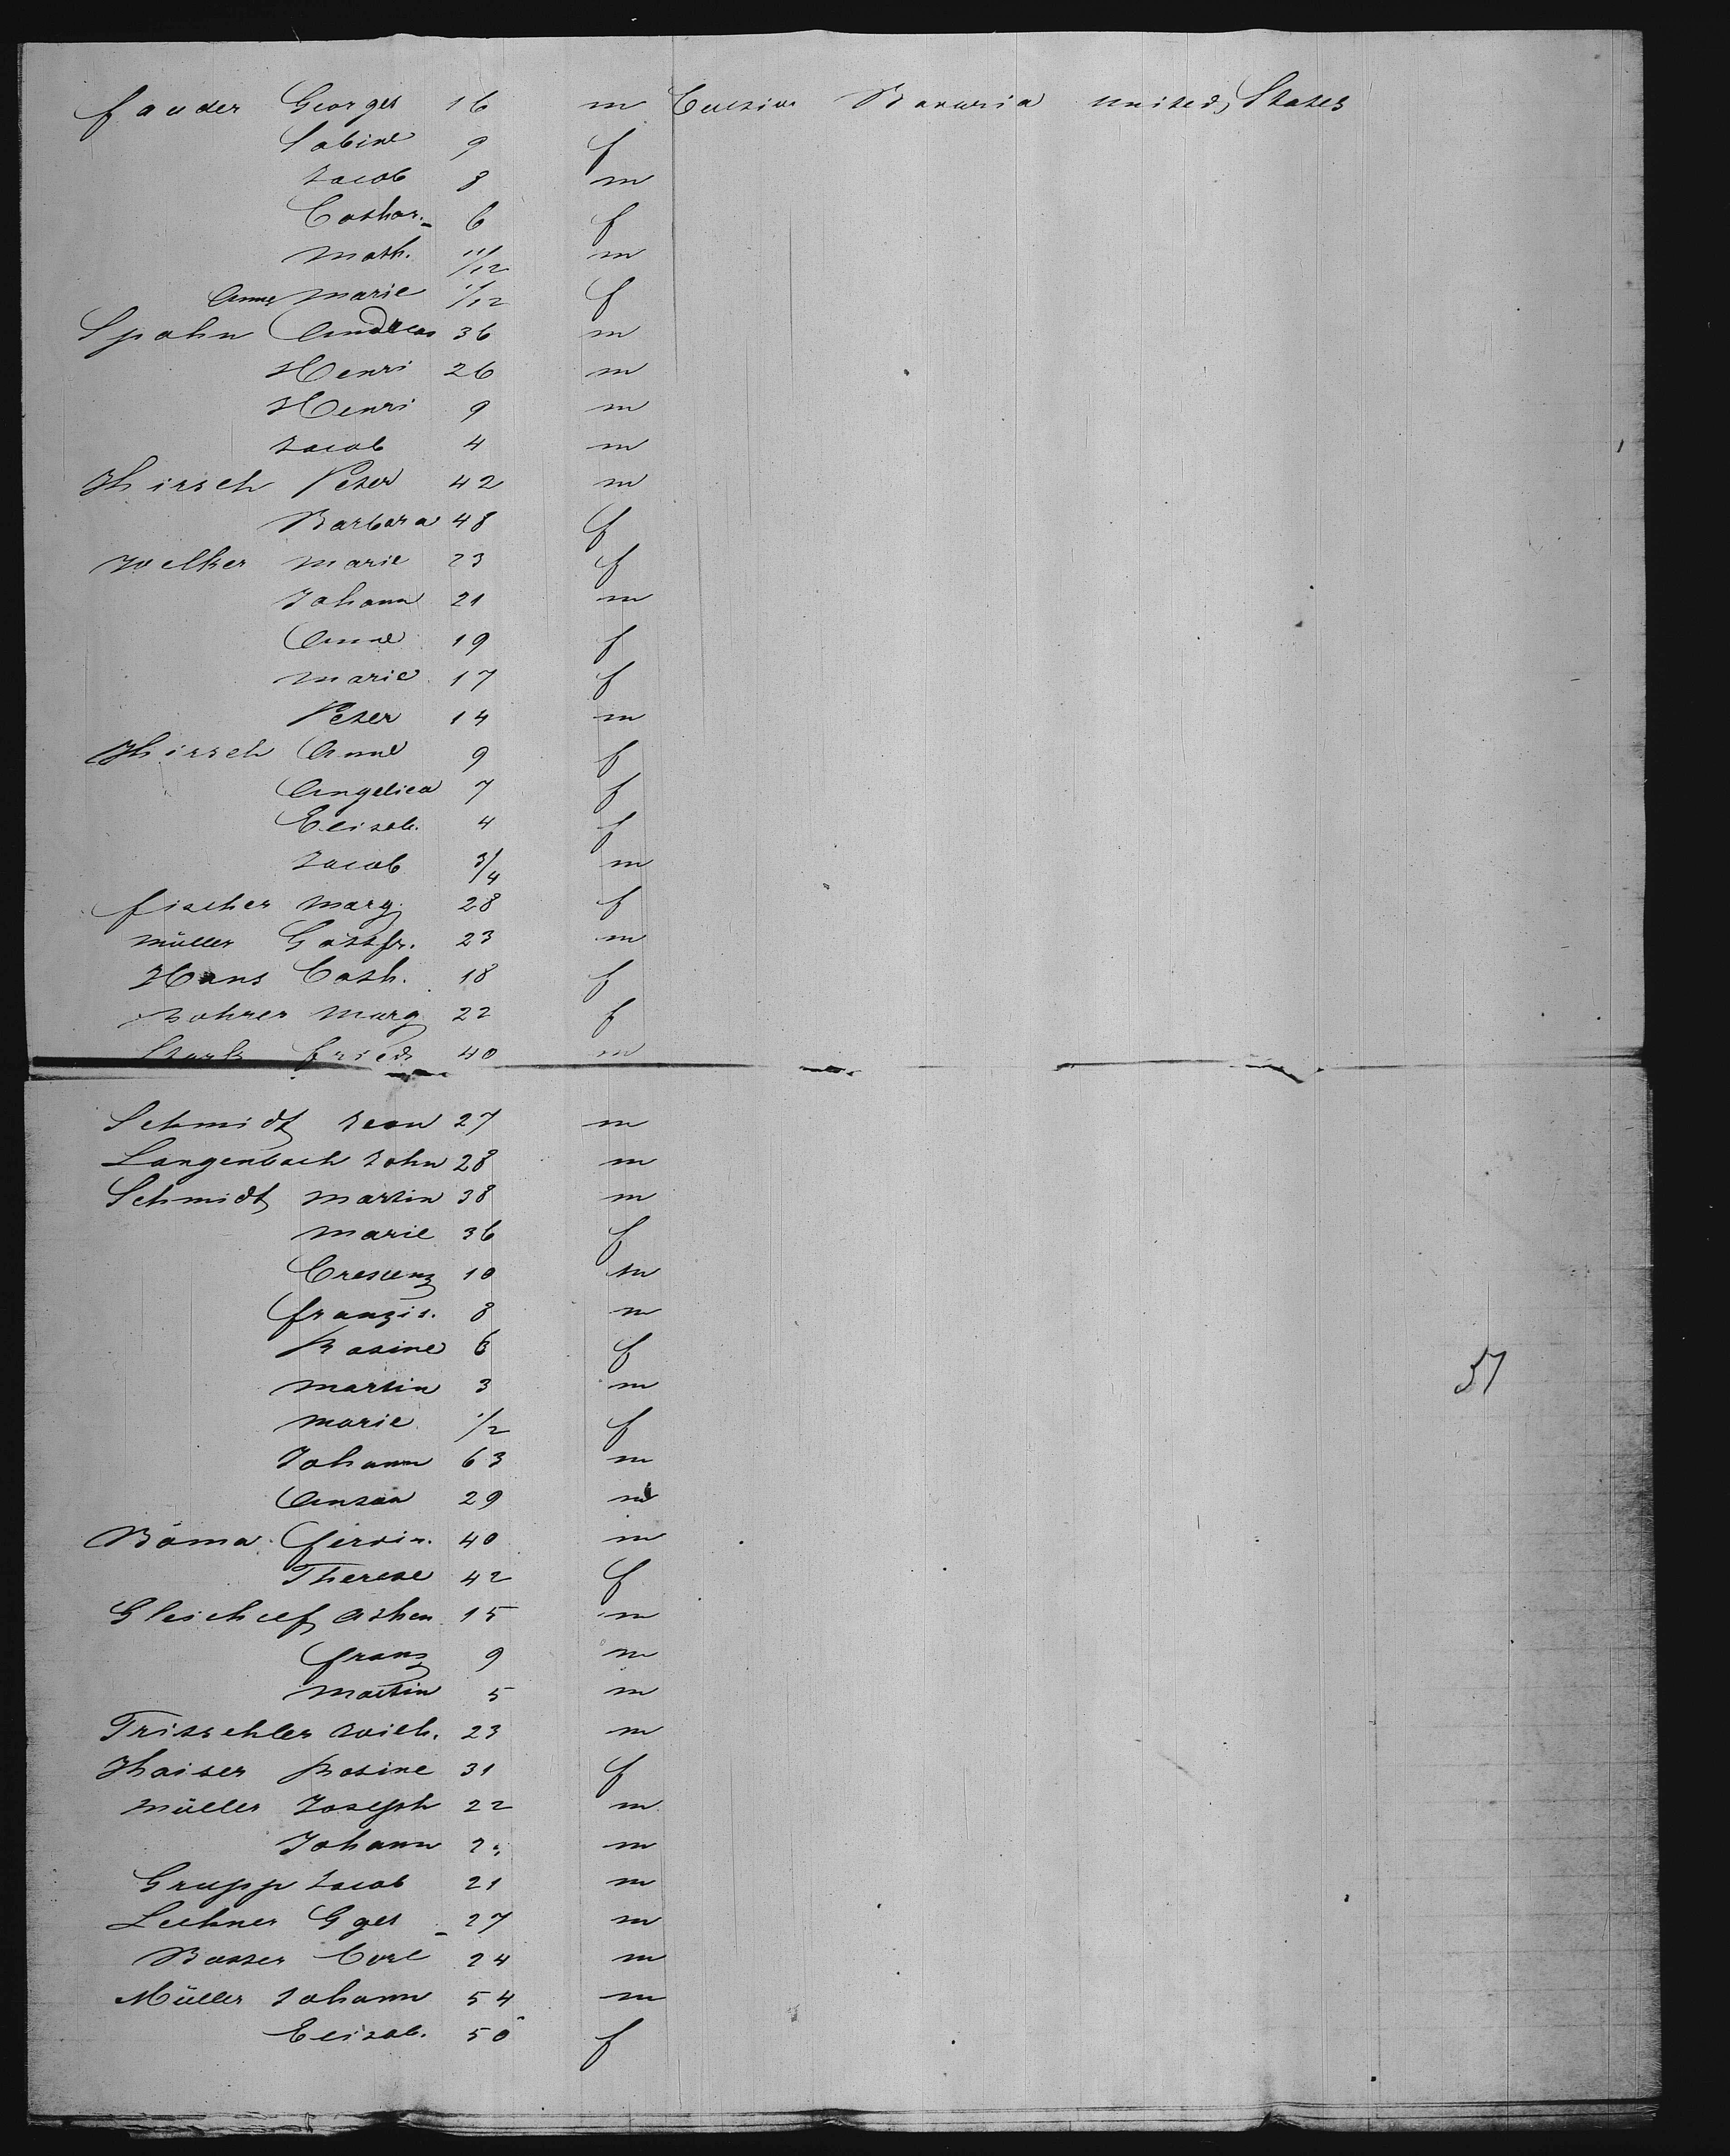 fauder Georges 16 m Cultiv. Bavaria united States
Sabine 9 f
Jacob 8 m
Cathar. 6 f
Math. 11/12 m
Anne Marie 1/12 f
Spahn Andreas 36 m
Henri 26 m
Henri 9 m
Jacob 4 m
Hirsch Peter 42 m
Barbara 48 f
Welker Marie 23 f
Johann 21 m
Anne 19 f
Marie 17 f
Peter 14 m
Hirsch Anne 9 f
Angelica 7 f
Elisab. 4 f
Jacob 3/4 m
fischer Marg. 28 f
Müller Gottfr. 23 m
Hans Cath. 18 f
Rohrer Marg 22 f
Stark fried 40 m
Schmidt Jean 27 m
Langenbach John 28 m
Schmidt Martin 38 m
Marie 36 f
Crescenz 10 m
franzis. 8 m
Rosine 6 f
Martin 3 m
Marie 1/2 f
Johann 63 m
Anton 29 m
Böma ferdin. 40 m
Therese 42 f
Gleichuf 15 m
franz 9 m
Martin 5 m
Tritschler Wilh. 23 m
Haiser Rosine 31 f
Müller Joseph 22 m
Johann m
Grupp Jacob 21 m
Lechner Gges 27 m
Basser Carl 24 m
Müller Johann 54 m
Elisab. 50 f
57